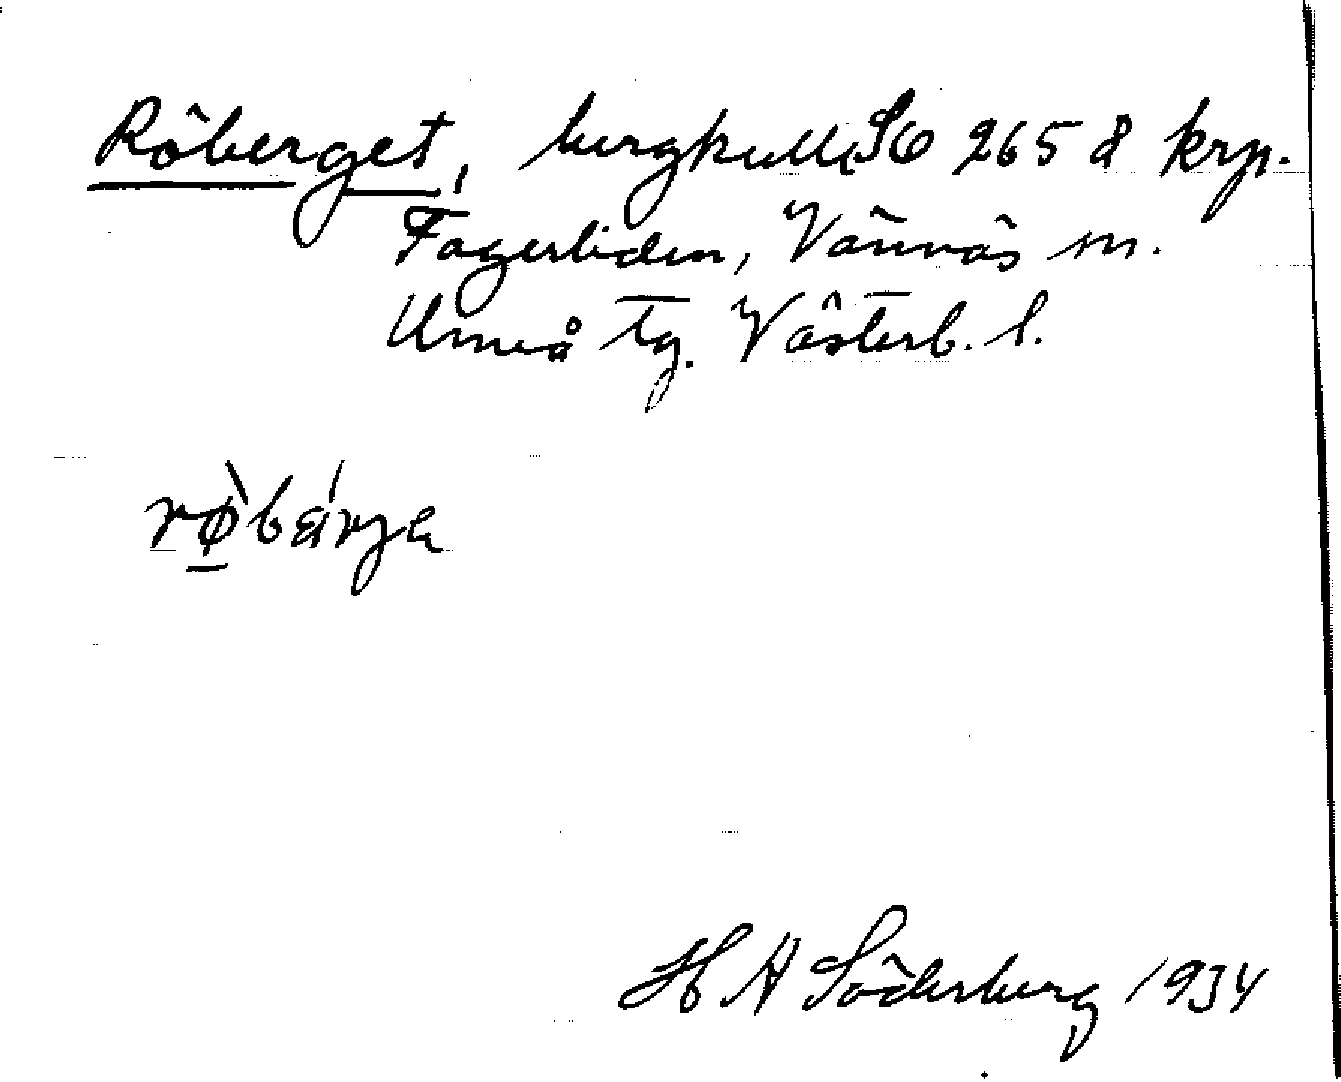 Röberget, bergkulle SO 265 8 krp.
Fagerliden, Vännäs sn.
Umeå tg. Västerb. l.
rø̲̀bä́rjɛ
H A Söderberg 1934